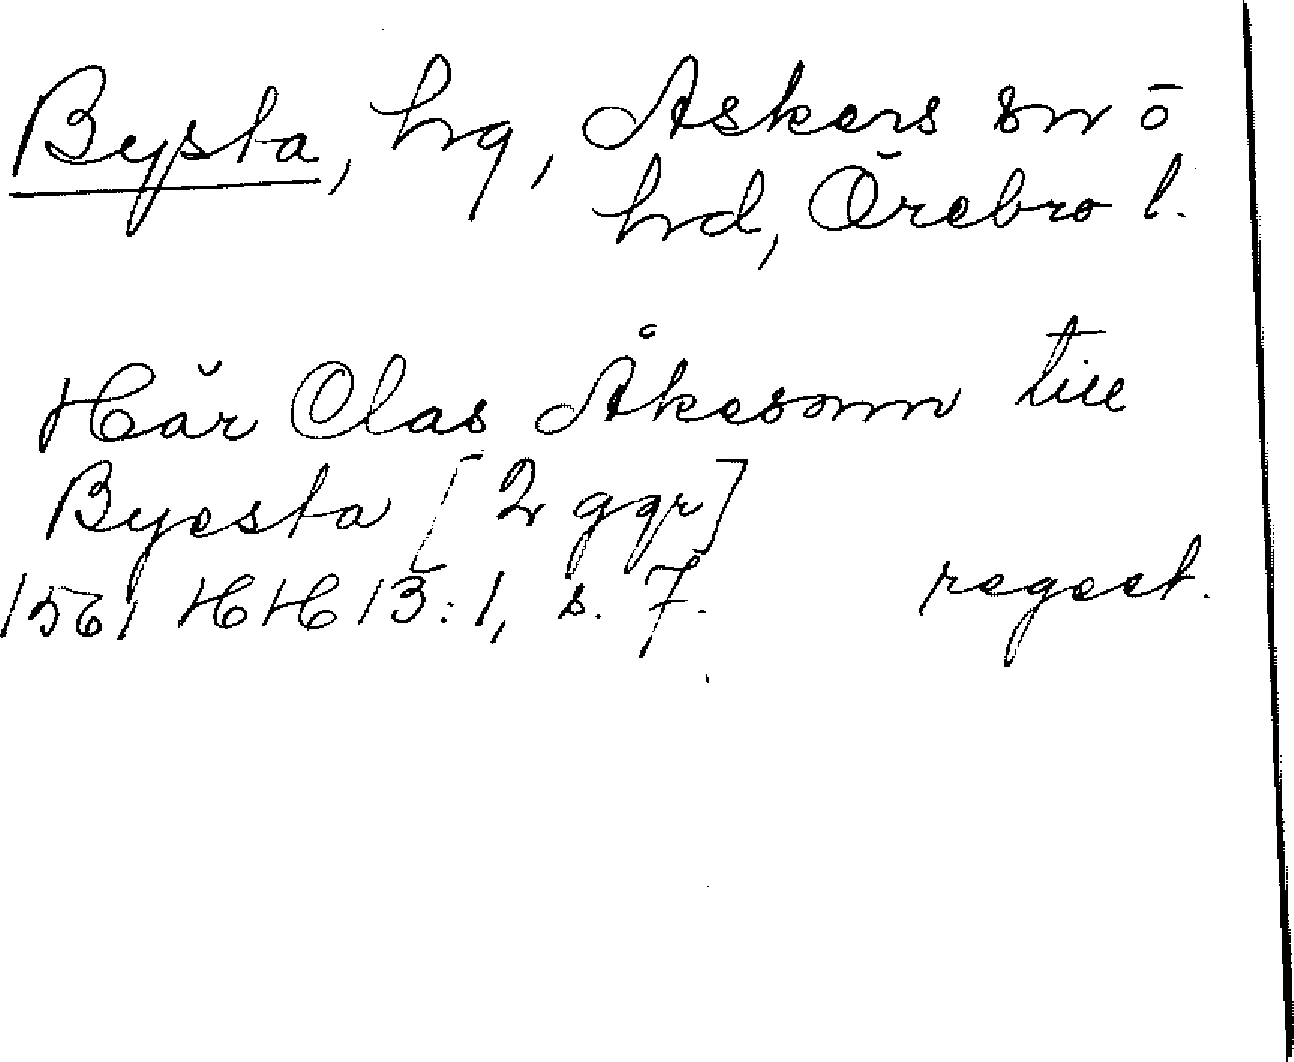 Bysta, hg, Askers sn ō
hd, Örebro l.
Här Clas Åkesonn till
Byesta [2 ggr]
1561 HH 13:1, s. 7. regest.